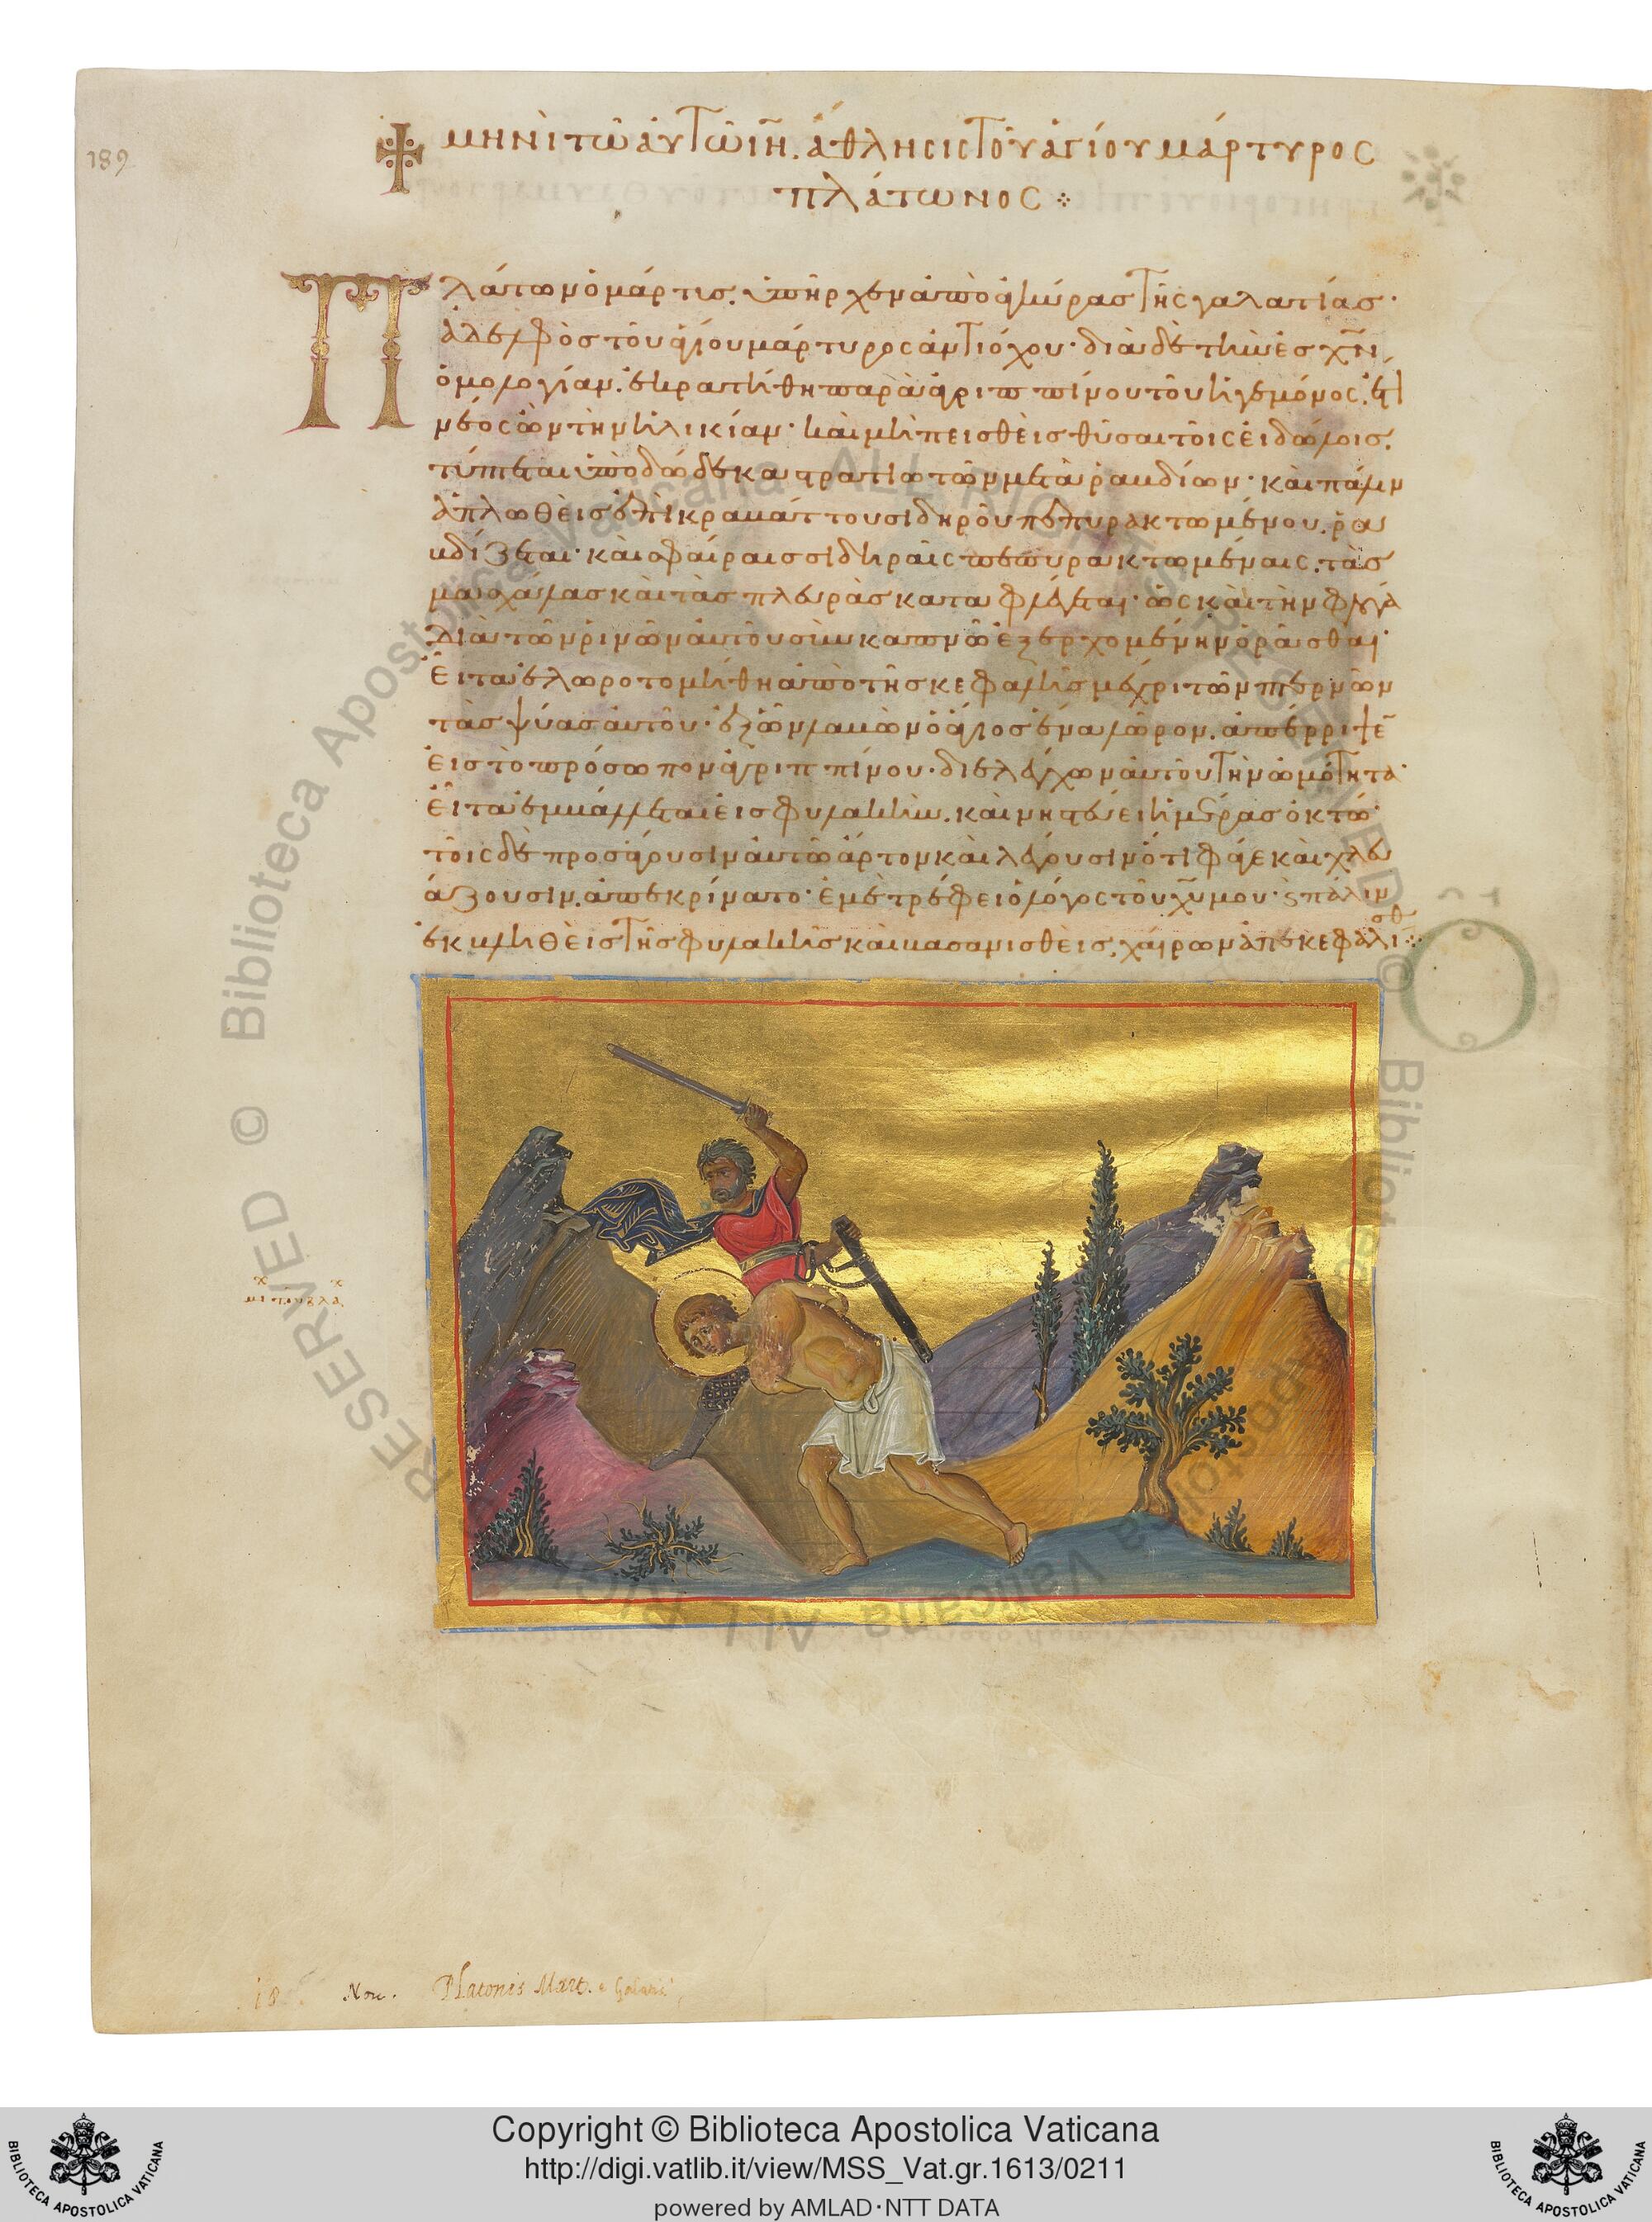 189
Μηνὶ τῶ αὐτῶ ιη̄. ἄθλησις τοῦ ἁγίου μάρτυρος
Πλάτωνος
Πλάτων ὁ μάρτυς. ὑπῆρχεν ἀπὸ ἀγκύρας τῆς γαλατίας·
ἀδελφὸς τοῦ ἁγίου μάρτυρος ἀντιόχου· διὰ δὲ τὴν εἰς χ̅ν̅
ὁμολογίαν. ἐκρατήθη παρὰ ἀγριππίνου τοῦ ἡγεμόνος. ἔτι
νέος ὢν τὴν ἡλικίαν· καὶ μὴ πεισθεὶς θῦσαι τοῖς εἰδώλοις.
τύπτεται ὑπὸ δώδεκα στρατιωτῶν μετὰ ῥαβδίων· καὶ πάλιν
ἁπλωθεὶς ἐπὶ κραβάττου σιδηροῦ πεπυρακτωμένου. ῥα
βδίζεται· καὶ σφαίραις σιδηραῖς πεπυρακτωμέναις. τὰς
μασχάλας καὶ τὰς πλευρὰς καταφλέγεται· ὡς καὶ τὴν φλόγα
διὰ τῶν ῥινῶν αὐτοῦ σὺν καπνῶ ἐξερχομένην ὁρᾶσθαι·
εἶτα ἐλωροτομήθη ἀπὸ τῆς κεφαλῆς μέχρι τῶν πτερνῶν
τὰς ψύας αὐτοῦ· ἐξ ὧν λαβὼν ὁ ἅγιος ἕνα λῶρον. ἀπέρριψε̅
εἰς τὸ πρόσωπον ἀγριππίνου· διελέγχων αὐτοῦ τὴν ὠμότητα·
εἶτα ἐμβάλλεται εἰς φυλακὴν. καὶ νηστεύει ἡμέρας ὀκτώ·
τοῖς δὲ προσάγουσιν αὐτῶ ἄρτον καὶ λέγουσιν ὅτι φάγε καὶ χλευ
άζουσιν. ἀπεκρίνατο· ἐμὲ τρέφει ὁ λόγος τοῦ χ̅υ̅ μου· ϗ πάλιν
ἐκβληθεὶς τῆς φυλακῆς καὶ βασανισθεὶς. χαίρων ἀπεκεφαλίσθη
18 Nov. Platonis Mart.
Copyright © Biblioteca Apostolica Vaticana
http://digi.vatlib.it/view/MSS_Vat.gr.1613/0211
powered by AMLAD·NTT DATA
BIBLIOTECA APOSTOLICA VATICANA
BIBLIOTECA APOSTOLICA VATICANA